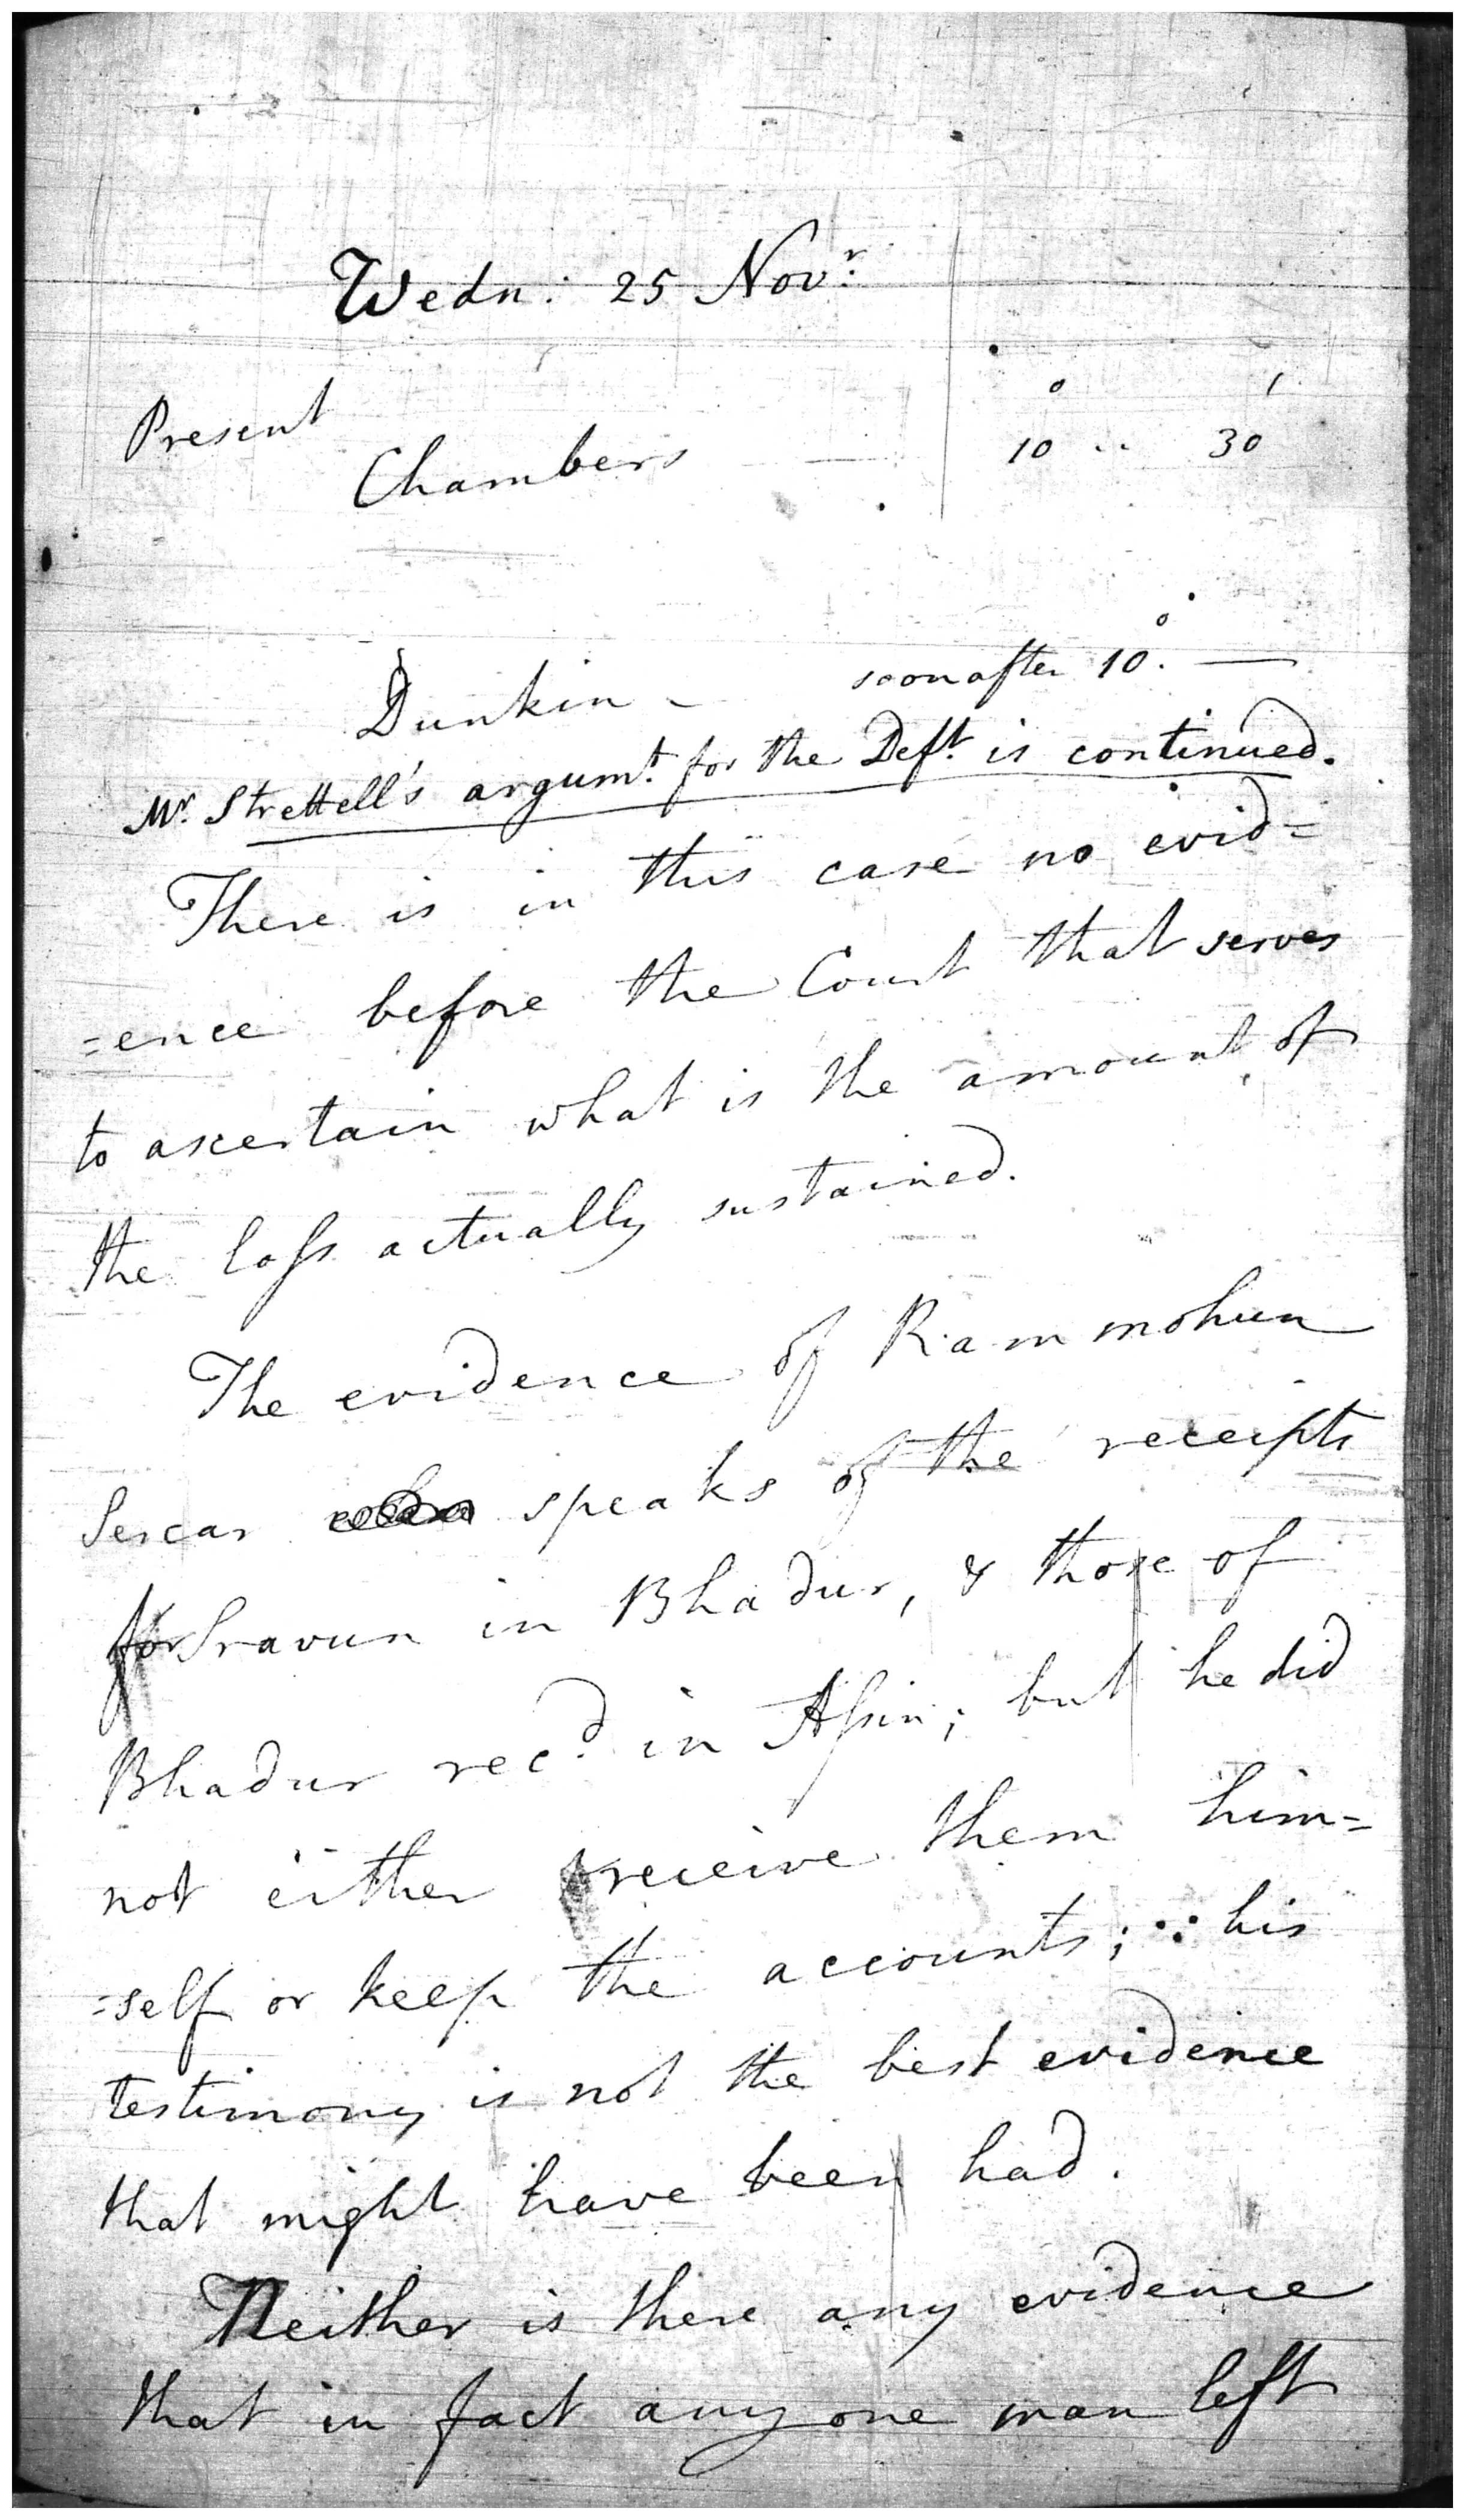 Wedn: 25 Novr.
Present
Chambers 10 .. 30
Dunkin - soon after 10.
Mr. Strettell's argumt. for the Deft. is continued.
There is in this case no evid=
=ence before the Court that serves
to ascertain what is the amount of
the loss actually sustained.
The evidence of Rammohun
Sercar speaks of the receipts
for Sravun in Bhadur, & those of
Bhadur recd. in Assin; but he did
not either receive them him=
=self or keep the accounts; ∵ his
testimony is not the best evidence
that might have been had.
Neither is there any evidence
that in fact any one man left